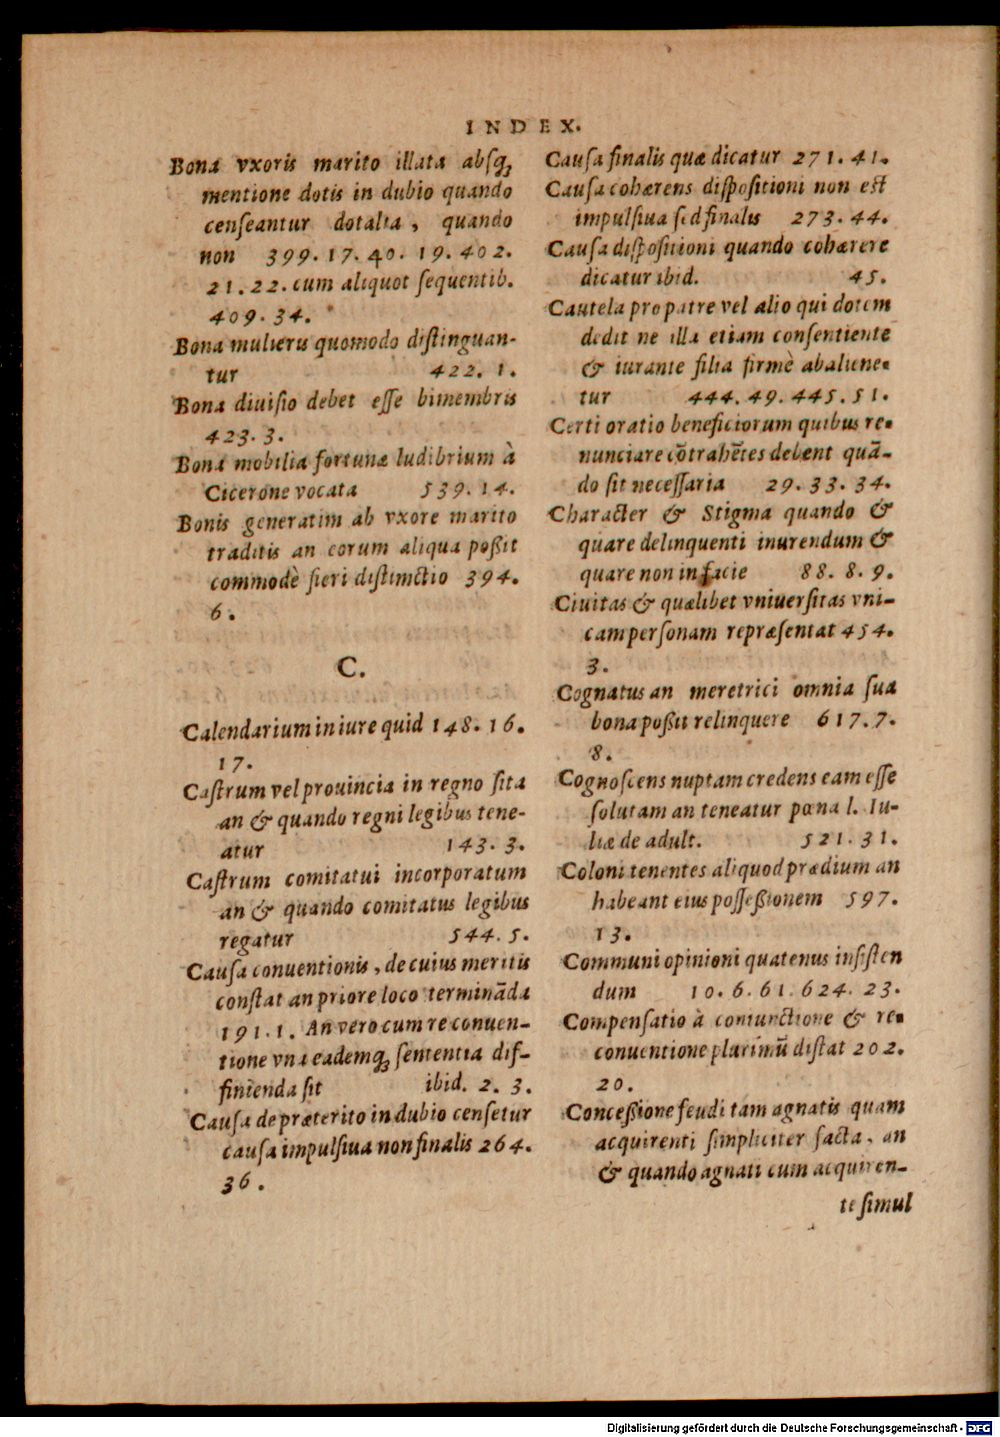 INDEX.
Bona vxoris marito illata absq́;
mentione dotis in dubio quando
censeantur dotalia, quando
non 399. 17. 40. 19. 402.
21. 22. cum aliquot sequentib.
409. 34.
Bona mulieris quomodo distinguan-
tur 422. 1.
Bona diuisio debet esse bimembris
423. 3.
Bona mobilia fortunæ ludibrium à
Cicerone vocata 539. 14.
Bonis generatim ab vxore marito
traditis an eorum aliqua poßit
commodè fieri distinctio 394.
6.
C.
Calendarium in iure quid 148. 16.
17.
Castrum vel prouincia in regno sita
an & quando regni legibus tene-
atur 143. 3.
Castrum comitatui incorporatum
an & quando comitatus legibus
regatur 544. 5.
Causa conuentionis, de cuius meritis
constat an priore loco terminãda
191. 1. An vero cum reconuen-
tione vna eademq́; sententia dif-
finienda sit ibid. 2. 3.
Causa de præterito in dubio censetur
causa impulsiua non finalis 264.
36.
Causa finalis quæ dicatur 271. 41.
Causa cohærens dispositioni non est
impulsiua sed finalis 273. 44.
Causa dispositioni quando cohærere
dicatur ibid. 45.
Cautela pro patre vel alio qui dotem
dedit ne illa etiam consentiente
& iurante filia firmè abaliene-
tur 444. 49. 445. 51.
Certioratio beneficiorum quibus re-
nunciare cõtrahẽtes debent quã-
do sit necessaria 29. 33. 34.
Character & Stigma quando &
quare delinquenti inurendum &
quare non in facie 88. 8. 9.
Ciuitas & quælibet vniuersitas vni-
cam personam repræsentat 454.
3.
Cognatus an meretrici omnia sua
bona poßit relinquere 617. 7.
8.
Cognoscens nuptam credens eam esse
solutam an teneatur pœna l. Iu-
liæ de adult. 521. 31.
Coloni tenentes aliquod prædium an
habeant eius posseßionem 597.
13.
Communi opinioni quatenus insisten
dum 10. 6. 61. 624. 23.
Compensatio à coniunctione & re-
conuentione plurimũ distat 202.
20.
Conceßione feudi tam agnatis quam
acquirenti simpliciter facta, an
& quando agnati cum acquiren-
te simul
Digitalisierung gefördert durch die Deutsche Forschungsgemeinschaft - DFG